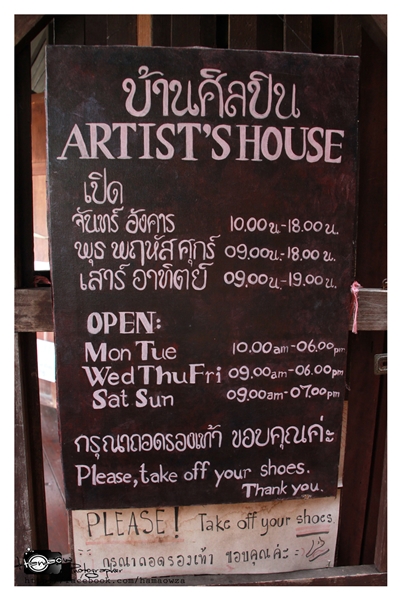 บ้านศิลปิน
ARTIST'S HOUSE
เปิด
จันทร์ อังคาร 10.00 น.-18.00 น.
พุธ พฤหัส ศุกร์ 09.00น.-18.00 น.
เสาร์ อาทิตย์ 09.00น.-19.00น.
OPEN:
Mon Tue 10.00am-06.00pm
Wed Thu Fri 09.00am-06.00pm
Sat Sun 09.00am-07.00pm
กรุณาถอดรองเท้า ขอบคุณค่ะ
Please, take off your shoes.
Thank you.
PLEASE! Take off your shoes.
กรุณาถอดรองเท้า ขอบคุณค่ะ
Photographer
facebook.com/hamaowza